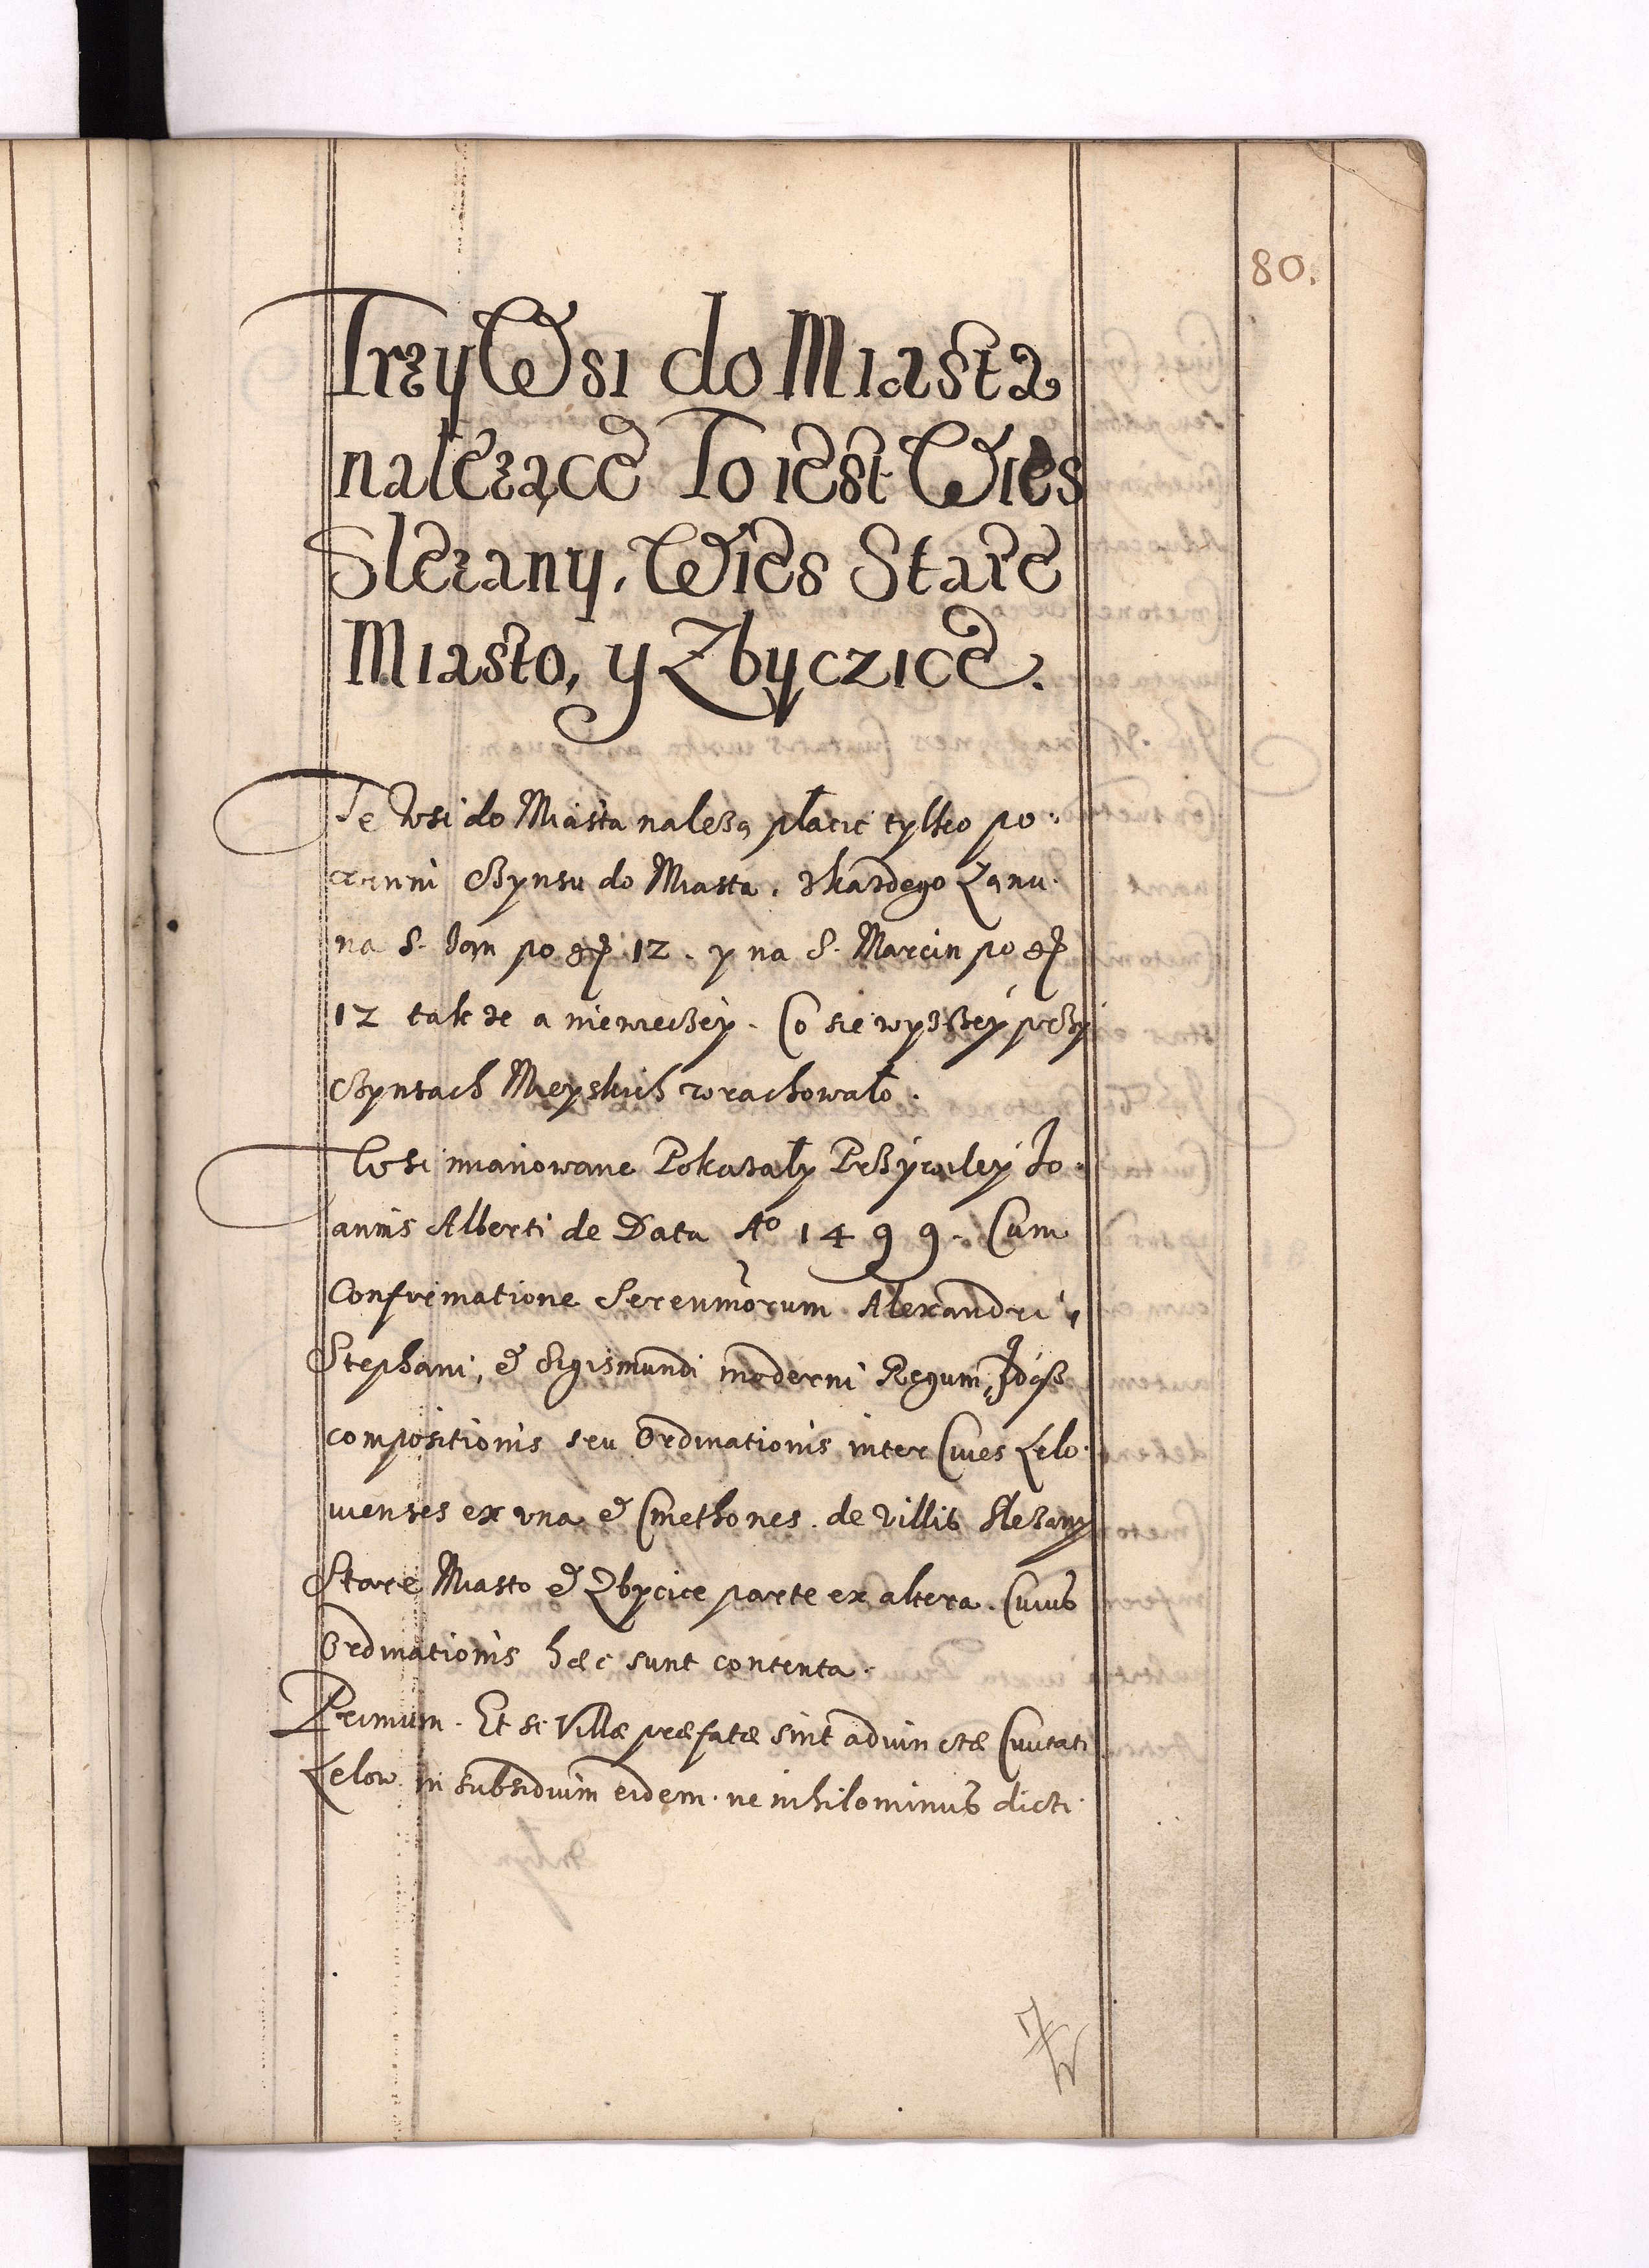 80.
Trzy Wsi do Miasta
należące To iest Wies
Slezany, Wies Stare
Miasto, y Zbyczice.
Te Wsi do Miasta należą płacic tylko po-
winni Czynszu do Miasta, z każdego Łanu
na S. Jan po gr 12. y na S. Marcin po gr
12 takze a niewieczey. Co sie wyższey przy
Czynszach Mieyskich wrachowało.
Wsi mianowane Pokazały Przywiley Jo-
annis Alberti de Data Aº 1499. Cum
Confirmatione Serenmorum Alexandri,
Stephani, & Sigismundi moderni Regum,
compositionis seu Ordinationis inter Cives Lelo-
vienses ex una & Cmethones de villis Slezany
Stare Miasto & Zbycice parte ex altera. Cuius
Ordinationis hæc sunt contenta.
Primum. Et si Villæ præfatæ sint adiunctæ Civitati
Lelow in subsidium eidem. ne nihilominus dicti